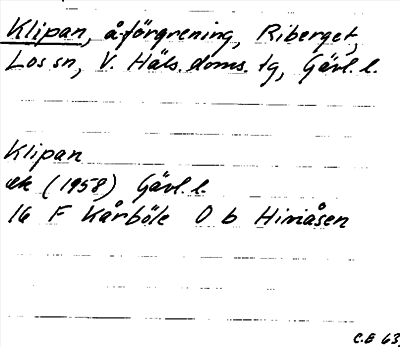 Klipan, åförgrening, Riberget,
Los sn, V. Häls. doms. tg, Gävl. l.
Klipan
ek (1958) Gävl. l.
16 F Kårböle 0 b Hiviåsen
C.E 63.